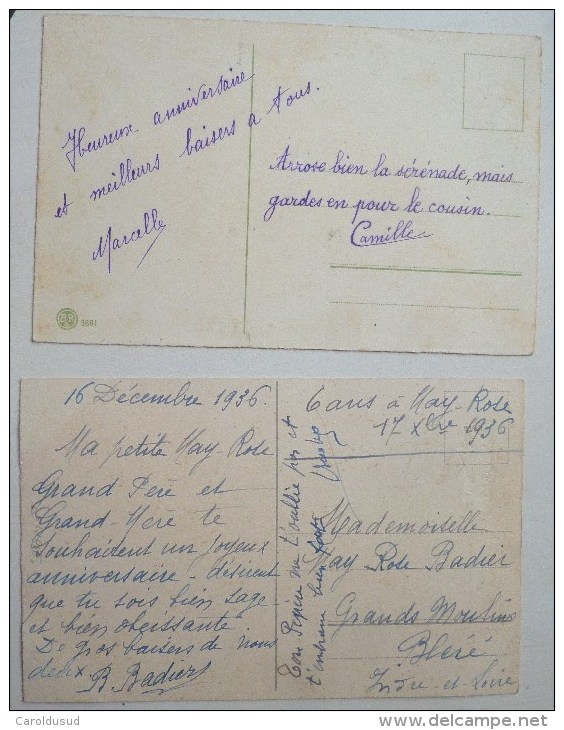 Heureux anniversaire
et meilleurs baisers à tous.
Marcelle
Arrose bien la sérénade, mais
gardes en pour le cousin.
Camille
3681
16 Décembre 1936.
Ma petite May-Rose
Grand Père et
Grand-Mère te
Souhaitent un joyeux
anniversaire - désirent
que tu sois bien sage
et bien obéissante.
De gros baisers de nous
deux B. Badier
Ton Pépère ne t'oublie pas et
t'embrasse bien
6 ans à May-Rose
17 Xbre 1936
Mademoiselle
May Rose Badier
Grands Moulins
Bléré
Indre-et-Loire
Caroldusud
www.delcampe.net